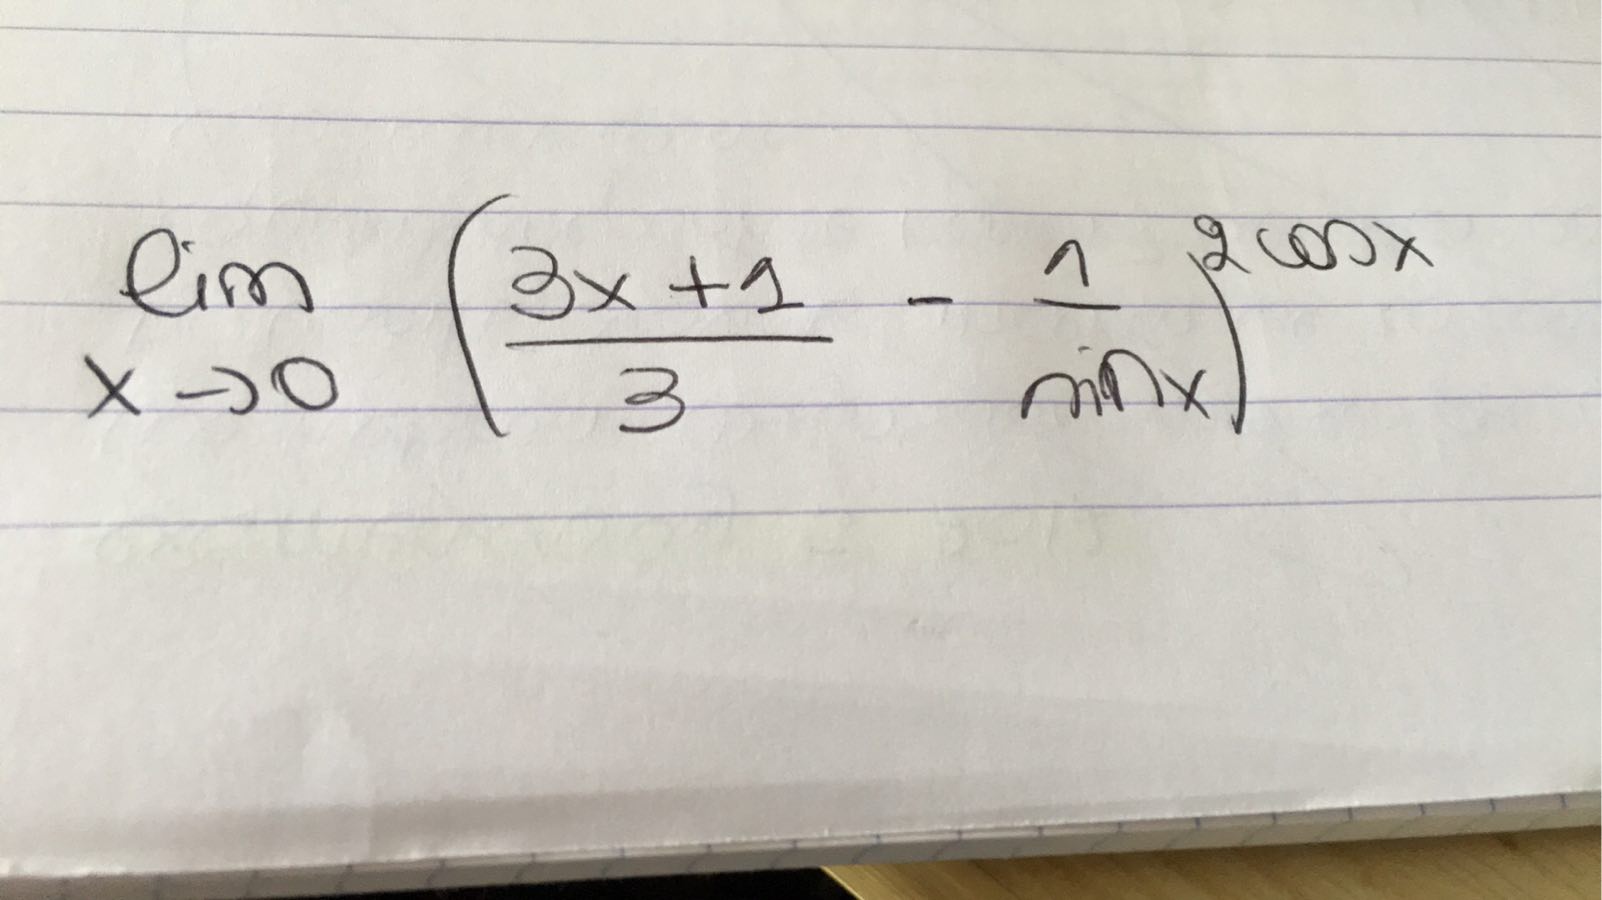 lim x→0 ( (3x+1)/3 - 1/sinx )^2cosx